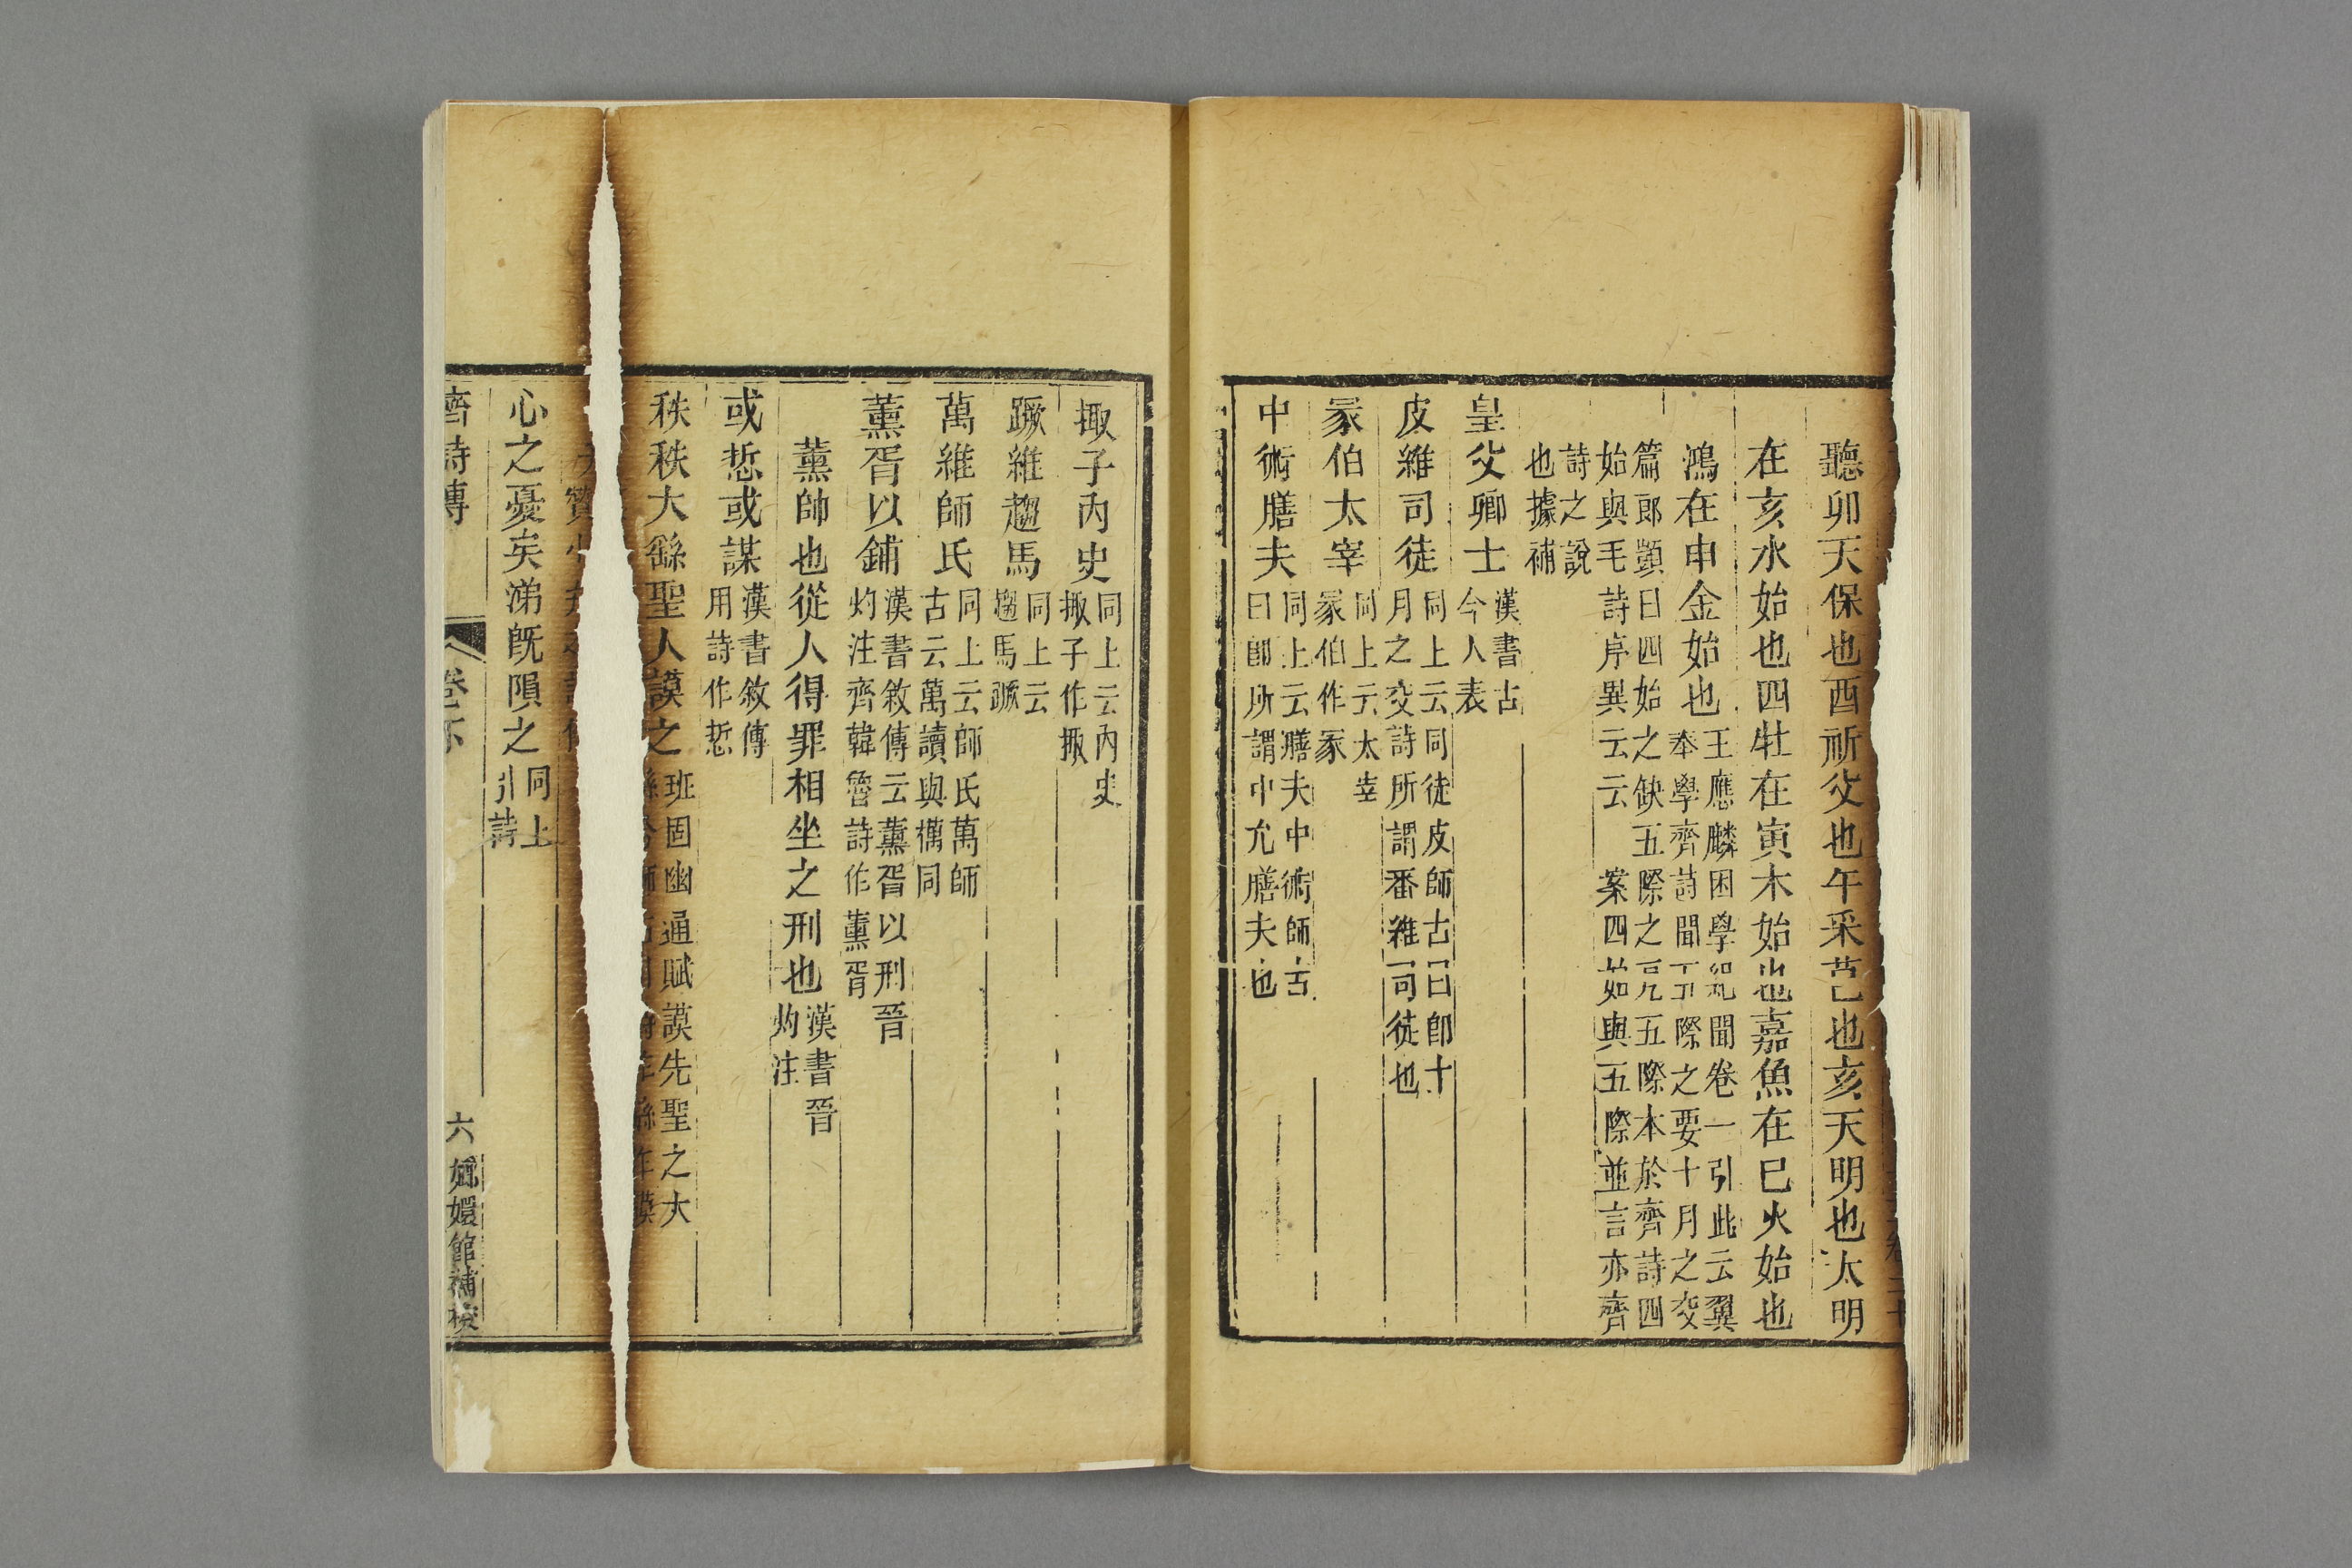 聽卯天保也酉祈父也午采芑也亥天明也大明
在亥水始也四牡在寅木始也嘉魚在巳火始也
鴻在申金始也王應麟困學紀聞卷一引此云翼
奉學齊詩聞五際之要十月之交
篇郎顗曰四始之缺五際之戹五際本於齊詩四
始與毛詩序異云云 案四始與五際並言亦齊
詩之說
也據補
皇父卿士漢書古
今人表
皮維司徒同上云司徒皮師古曰卽十
月之交詩所謂番維司徒也
冢伯太宰同上云太宰
冢伯作冢
中術膳夫同上云膳夫中術師古
曰卽所謂中允膳夫也
掫子內史同上云內史
掫子作掫
蹶維趨馬同上云
趨馬蹶
萬維師氏同上云師氏萬師
古云萬讀與楀同
薰胥以鋪漢書敘傳云薰胥以刑晉
灼注齊韓魯詩作薰胥
薰帥也從人得罪相坐之刑也漢書晉
灼注
或悊或謀漢書敘傳
用詩作悊
秩秩大繇聖人謨之班固幽通賦謨先聖之大
心之憂矣涕旣隕之同上
引詩
齊詩傳 卷下 六 嫏嬛館補校